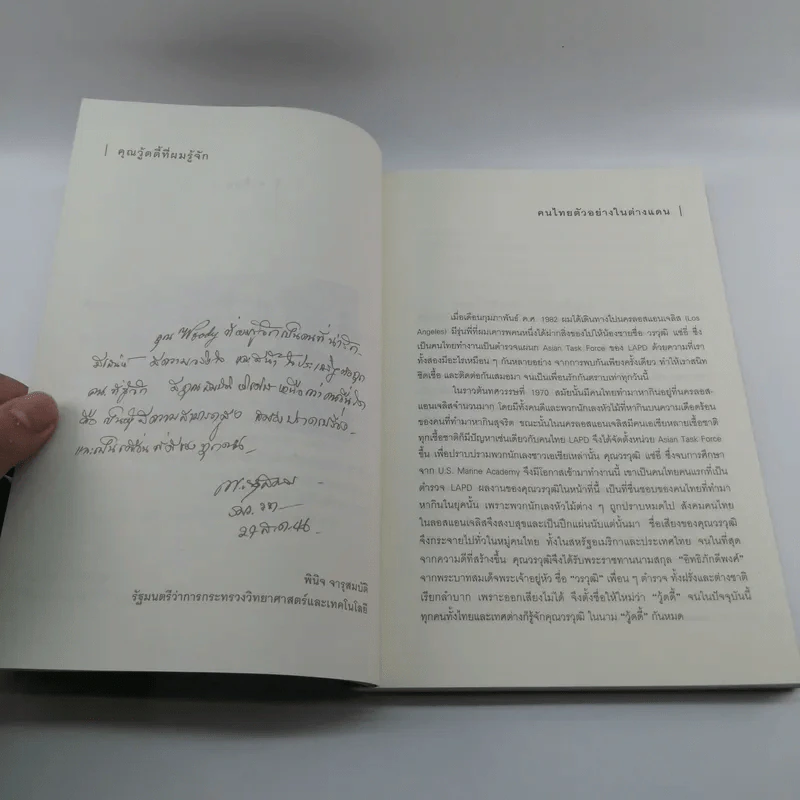 คุณวู้ดดี้ที่ผมรู้จัก
คุณ Woody ที่ผมรู้จักเป็นคนที่น่ารัก
มีเสน่ห์ มีความจริงใจ
คนที่รู้จัก
และเป็นเพื่อนที่ดีของทุกคน
พินิจ จารุสมบัติ
รัฐมนตรีว่าการกระทรวงวิทยาศาสตร์และเทคโนโลยี
คนไทยตัวอย่างในต่างแดน
เมื่อเดือนกุมภาพันธ์ ค.ศ. 1982 ผมได้เดินทางไปนครลอสแอนเจลิส (Los
Angeles) มีรุ่นพี่ที่ผมเคารพคนหนึ่งได้ฝากสิ่งของไปให้น้องชายชื่อ วรวุฒิ แซ่อี่ ซึ่ง
เป็นคนไทยทำงานเป็นตำรวจแผนก Asian Task Force ของ LAPD ด้วยความที่เรา
ทั้งสองมีอะไรเหมือน ๆ กันหลายอย่าง จากการพบกันเพียงครั้งเดียว ทำให้เราสนิท
ชิดเชื้อ และติดต่อกันเสมอมา จนเป็นเพื่อนรักกันตราบเท่าทุกวันนี้
ในราวต้นทศวรรษที่ 1970 สมัยนั้นมีคนไทยทำมาหากินอยู่ที่นครลอส-
แอนเจลิสจำนวนมาก โดยมีทั้งคนดีและพวกนักเลงหัวไม้ที่หากินบนความเดือดร้อน
ของคนที่ทำมาหากินสุจริต ขณะนั้นในนครลอสแอนเจลิสมีคนเอเชียหลายเชื้อชาติ
ทุกเชื้อชาติก็มีปัญหาเช่นเดียวกับคนไทย LAPD จึงได้จัดตั้งหน่วย Asian Task Force
ขึ้น เพื่อปราบปรามพวกนักเลงชาวเอเชียเหล่านั้น คุณวรวุฒิ แซ่อี่ ซึ่งจบการศึกษา
จาก U.S. Marine Academy จึงมีโอกาสเข้ามาทำงานนี้ เขาเป็นคนไทยคนแรกที่เป็น
ตำรวจ LAPD ผลงานของคุณวรวุฒิในหน้าที่นี้ เป็นที่ชื่นชอบของคนไทยที่ทำมา
หากินในยุคนั้น เพราะพวกนักเลงหัวไม้ต่าง ๆ ถูกปราบหมดไป สังคมคนไทย
ในลอสแอนเจลิสจึงสงบสุขและเป็นปึกแผ่นนับแต่นั้นมา ชื่อเสียงของคุณวรวุฒิ
จึงกระจายไปทั่วในหมู่คนไทย ทั้งในสหรัฐอเมริกาและประเทศไทย จนในที่สุด
จากความดีที่สร้างขึ้น คุณวรวุฒิจึงได้รับพระราชทานนามสกุล "อิทธิภักดีพงศ์"
จากพระบาทสมเด็จพระเจ้าอยู่หัว ชื่อ "วรวุฒิ" เพื่อน ๆ ตำรวจ ทั้งฝรั่งและต่างชาติ
เรียกลำบาก เพราะออกเสียงไม่ได้ จึงตั้งชื่อให้ใหม่ว่า "วู้ดดี้" จนในปัจจุบันนี้
ทุกคนทั้งไทยและเทศต่างก็รู้จักคุณวรวุฒิ ในนาม "วู้ดดี้" กันหมด